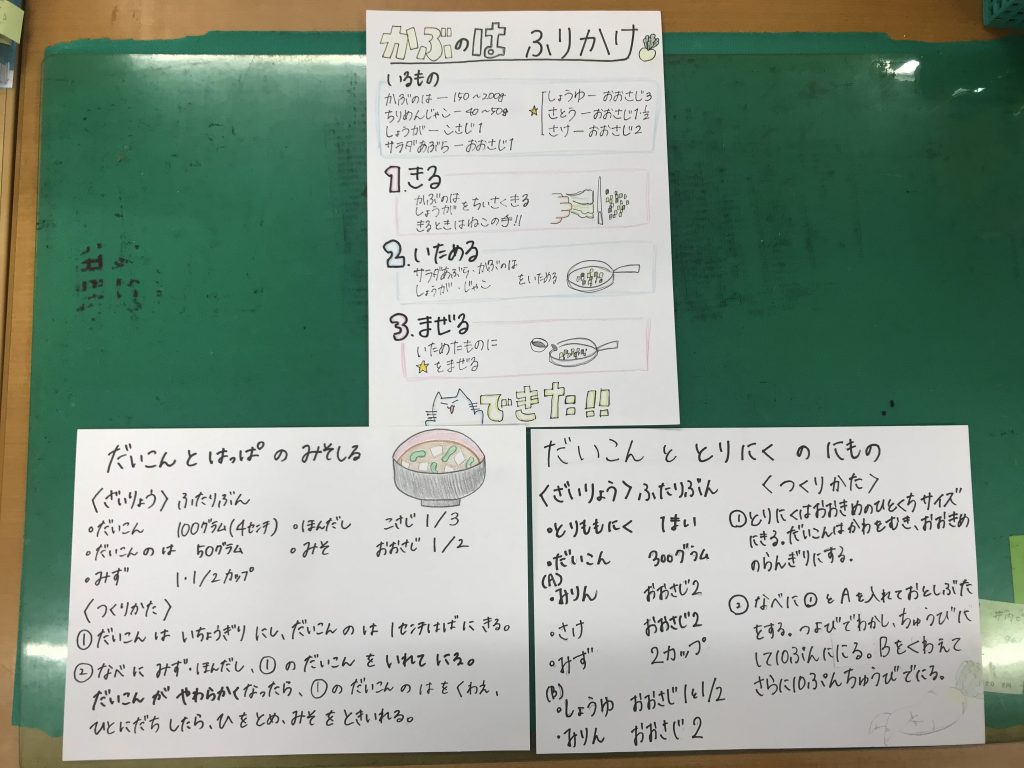 かぶのは ふりかけ
いるもの
かぶのは ー 150〜200g
ちりめんじゃこ ー 40〜50g
しょうが ー こさじ1
サラダあぶら ー おおさじ1
☆
しょうゆ ー おおさじ3
さとう ー おおさじ1・1/2
さけ ー おおさじ2
1.きる
かぶのは
しょうが をちいさくきる
きるときはねこの手!!
2.いためる
サラダあぶら・かぶのは
しょうが・じゃこ をいためる
3.まぜる
いためたものに
☆をまぜる
できた!!
だいこん と はっぱ の みそしる
〈ざいりょう〉 ふたりぶん
・だいこん 100グラム(4センチ) ・ほんだし こさじ 1/3
・だいこんのは 50グラム ・みそ おおさじ 1/2
・みず 1・1/2カップ
〈つくりかた〉
①だいこん は いちょうぎり にし、だいこん の は 1センチはば に きる。
②なべ に みず・ほんだし、①の だいこん を いれて にる。
だいこん が やわらかく なったら、①の だいこん の は を くわえ、
ひとにだち したら、ひ を とめ、みそ を ときいれる。
だいこん と とりにく の にもの
〈ざいりょう〉ふたりぶん
・とりももにく 1まい
・だいこん 300グラム
(A)
・みりん おおさじ2
・さけ おおさじ2
・みず 2カップ
(B)
・しょうゆ おおさじ1と1/2
・みりん おおさじ2
〈つくりかた〉
①とりにくはおおきめのひとくちサイズ
にきる。だいこんはかわをむき、おおきめ
のらんぎりにする。
②なべに①とAを入れておとしぶた
をする。つよびでわかし、ちゅうびに
して10ぷんににる。Bをくわえて
さらに10ぷんちゅうびでにる。